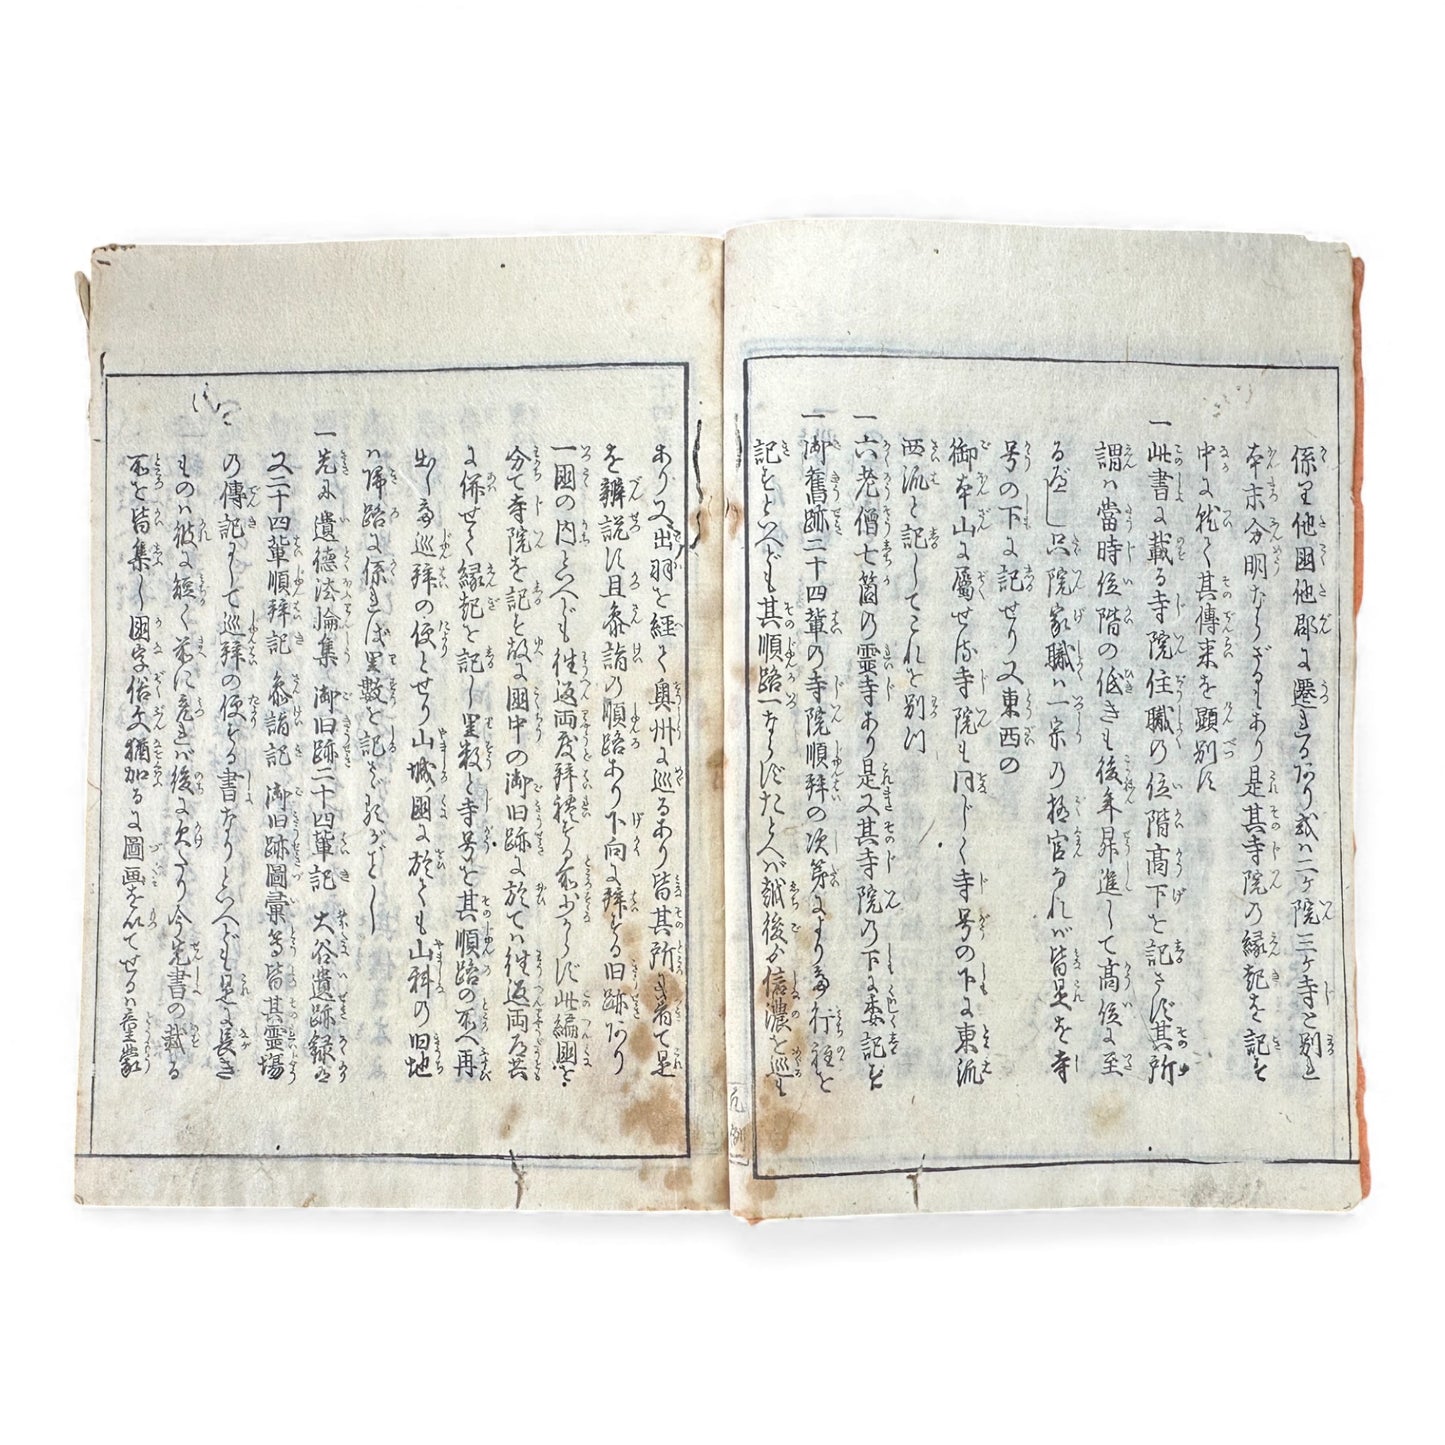 係り他国他郡に遷れるあり或は二ヶ院三ヶ寺と別れ
本末分明ならざるもあり是其寺院の縁起を記す
中に就て其傳来を顕別す
一此書に載る寺院住職の位階高下を記さず其所
謂は當時位階の低きも後年昇進して高位に至
る故し只院家職は一宗の極官なれば皆是を寺
号の下に記せり又東西の
御本山に属せる寺院も同じく寺号の下に東派
西派と記してこれを別つ
一六老僧七箇の霊寺あり是又其寺院の下に委記す
一御舊跡二十四輩の寺院順拜の次第により行程を
記すといへども其順路一ならずたとへば越後か信濃を巡も
あり又出羽を経て奥州に巡るあり皆其所に着て是
を辨説す且参詣の順路あり下向に拜する旧跡あり
一國の内といへども往返両度拜禮する所少からず此編國を
分て寺院を記す故に國中の御旧跡に於ては往返両道共
に併せて縁起を記し里数と寺号を其順路の所へ再
出し巡拜の便とせり山城國に於ても山科の旧地
は帰路に係れば里数を記さゞるがごとし
一先に遺徳法輪集 御旧跡二十四輩記 大谷遺跡録
又二十四輩順拜記 参詣記 御旧跡圖彙等皆其霊場
の傳記にして巡拜の便する書なりといへども是に長き
ものは彼に短く前に委きは後に欠たり今先書の載る
所を皆集し國字俗文猶加るに圖画を以てせるは童蒙
凡例